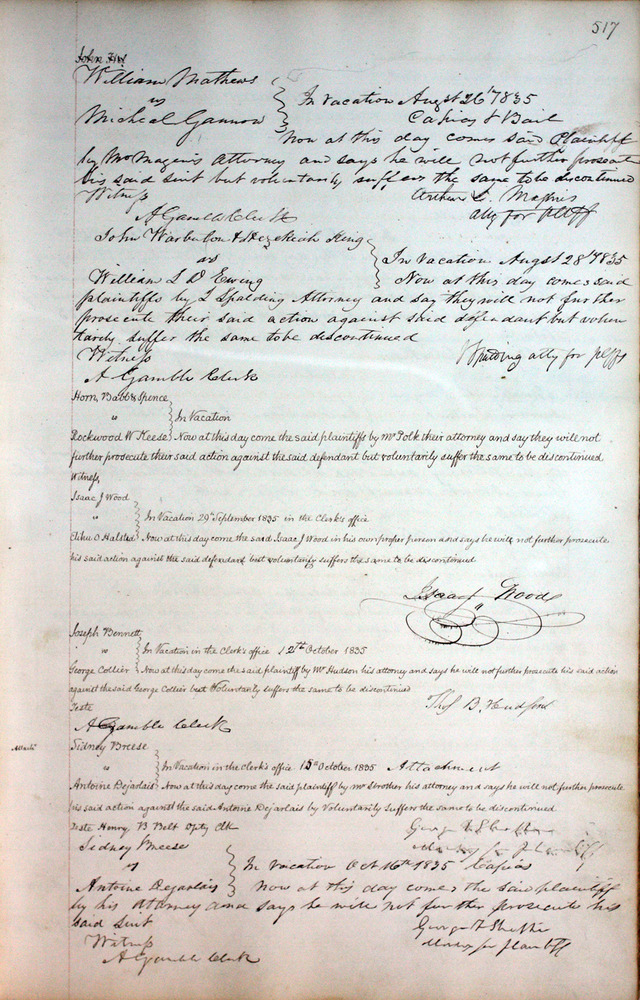 517
William Mathews
vs
Micheal Gannon
In Vacation Augst 26th 1835
Capias & Bail
Now at this day comes said Plaintiff
by Mr Magenis Attorney and says he will not further prosecute
his said suit but voluntarily suffers the same to be discontinued
Witness
Arthur L. Magenis
atty for Plff
A Gamble Clerk
John Warburton & Hezekiah King
vs
William L D Ewing
In Vacation Augst 28th 1835
Now at this day comes said
plaintiffs by J Spalding Attorney and say they will not further
prosecute their said action against said defendant but volun
tarily suffer the same to be discontinued
Witness
Spalding atty for plffs
A Gamble Clerk
Horn, Babb & Spence
"
Rockwood W Keese
In Vacation
Now at this day come the said plaintiffs by Mr Polk their attorney and say they will not
further prosecute their said action against the said defendant but voluntarily suffer the same to be discontinued
Witness,
Isaac J Wood
"
Elihu O Halsted
In Vacation 29th September 1835 in the Clerk's office
Now at this day come the said Isaac J Wood in his own proper person and says he will not further prosecute
his said action against the said defendant but voluntarily suffers the same to be discontinued
Isaac J Wood
Joseph Bennett
"
George Collier
In Vacation in the Clerk's office 12th October 1835
Now at this day come the said plaintiff by Mr Hudson his attorney and says he will not further prosecute his said action
against the said George Collier but Voluntarily suffers the same to be discontinued
Teste
Thos B. Hudson
A Gamble Clerk
Sidney Breese
"
Antoine Dejarlais
In Vacation in the Clerk's office 15th October 1835 Attachment
Now at this day come the said plaintiff by Mr Strother his attorney and says he will not further prosecute
his said action against the said Antoine Dejarlais by Voluntarily suffers the same to be discontinued
Teste Henry B Belt Dpty Clk
George
Sidney Breese
vs
Antoine Dejarlais
In Vacation Oct 16th 1835 Capias
Now at this day comes the said plaintiff
by his Attorney and says he will not further prosecute his
said suit
George F Strother
Attorney for plaintiff
Witness
A Gamble Clerk